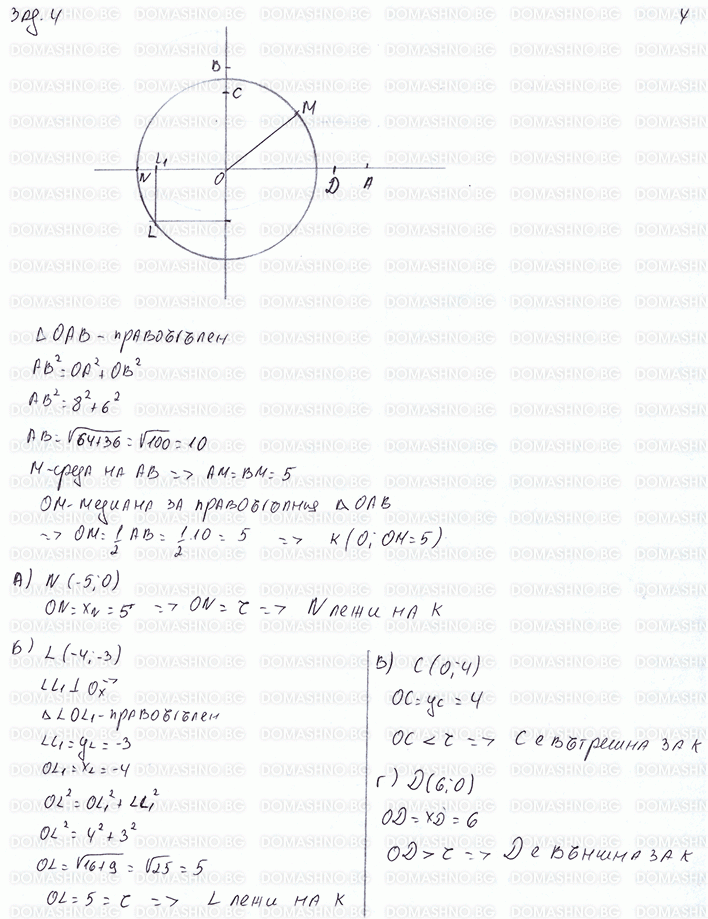 Зад. 4
4
B
C
M
N
L₁
O
D
A
L
△OAB - правоъгълен
AB² = OA² + OB²
AB² = 8² + 6²
AB = √64+36 = √100 = 10
M-среда на AB => AM = BM = 5
OM-медиана за правоъгълния △OAB
=> OM = 1/2 AB = 1/2 . 10 = 5 => K (O; OM = 5)
А) N (-5; 0)
ON = xN = 5 => ON = r => N лежи на K
Б) L (-4; -3)
LL₁ ⊥ Ox→
△LOL₁ - правоъгълен
LL₁ = yL = -3
OL₁ = xL = -4
OL² = OL₁² + LL₁²
OL² = 4² + 3²
OL = √16+9 = √25 = 5
OL = 5 = r => L лежи на K
В) C (0; 4)
OC = yC = 4
OC < r => C е вътрешна за K
Г) D (6; 0)
OD = xD = 6
OD > r => D е външна за K
DOMASHNO.BG